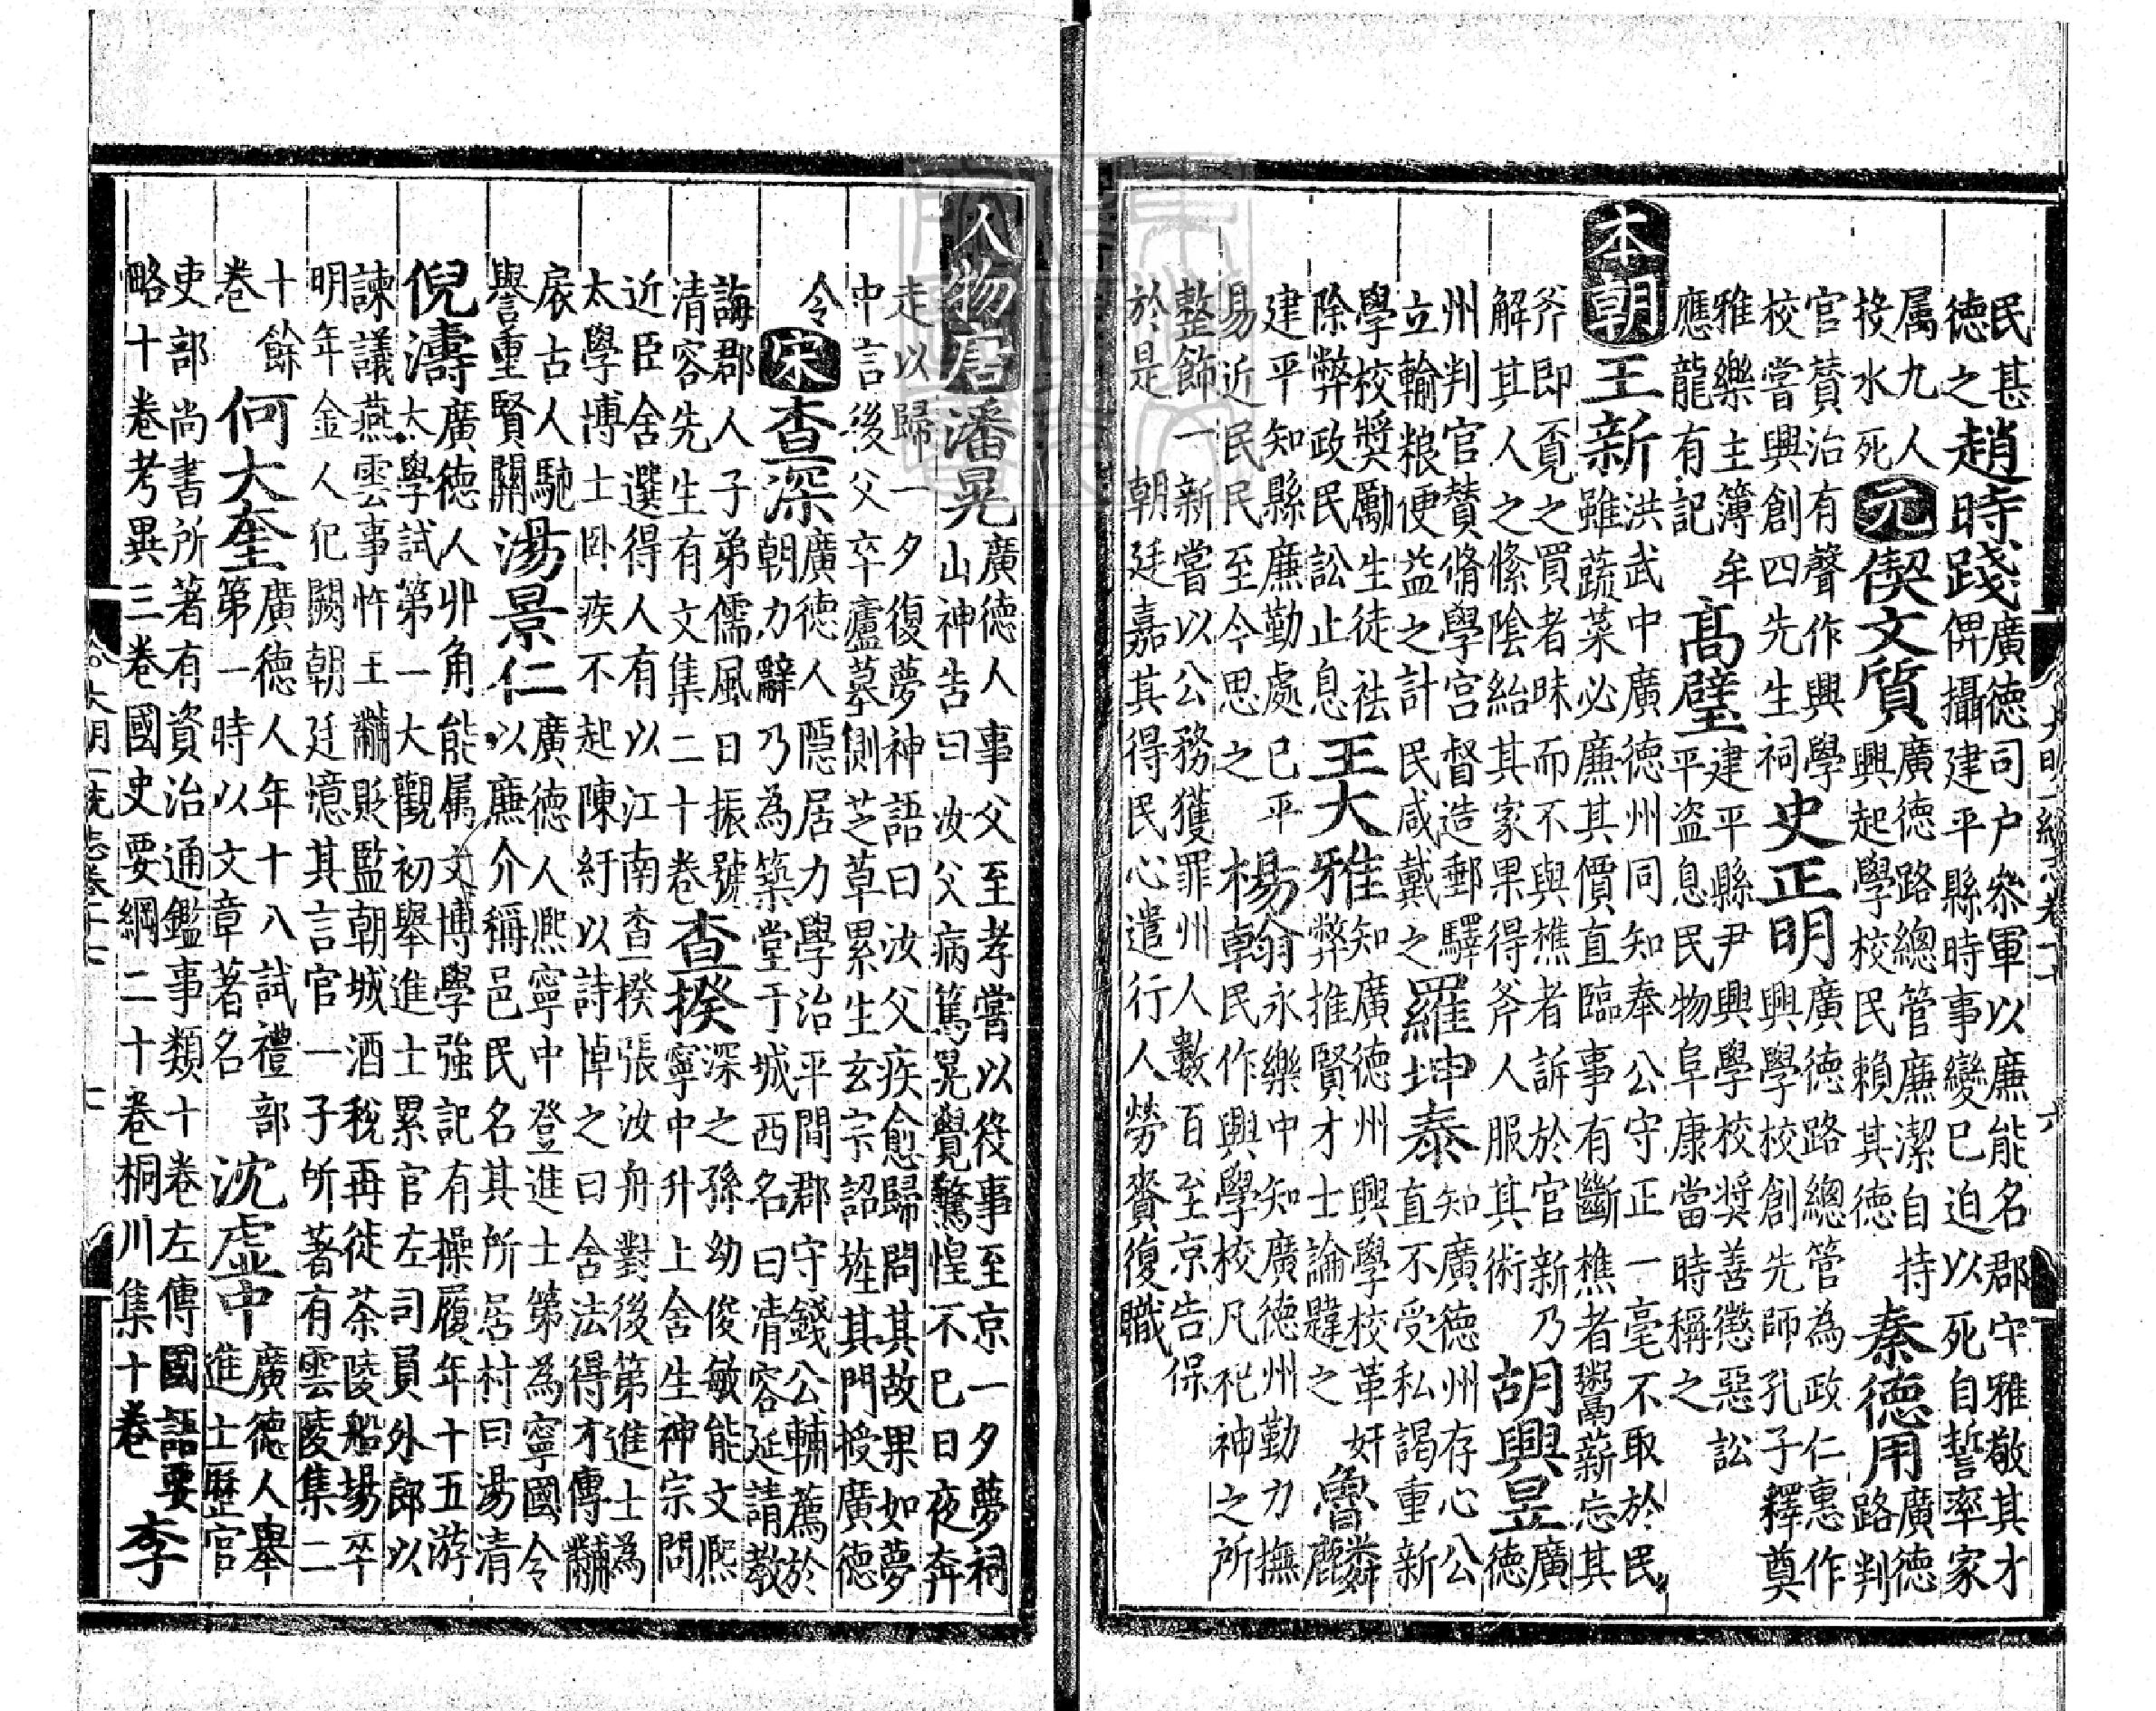 大明一統志卷十七 六
民甚德之趙時踐廣德司户參軍以廉能名郡守雅敬其才俾攝建平縣時事變已迫以死自誓率家
属九人投水死元偰文質廣德路總管廉潔自持興起學校民賴其德秦德用廣德路判
官賛治有聲作興學校嘗興創四先生祠史正明廣德路總管為政仁惠作興學校創先師孔子釋奠
雅樂主簿牟應龍有記高璧建平縣尹興學校奨善懲惡訟平盗息民物阜康當時稱之
本朝王新洪武中廣德州同知奉公守正一毫不取於民雖蔬菜必廉其價直臨事有斷樵者鬻薪忘其
斧即覔之買者昧而不與樵者訴於官新乃解其人之絛陰紿其家果得斧人服其術胡興昱廣德
州判官賛脩學宮督造郵驛立輸粮便益之計民咸戴之羅坤泰知廣德州存心公直不受私謁重新
學校奬勵生徒祛除弊政民訟止息王大雅知廣德州興學校革奸弊推賢才士論韙之魯麟
建平知縣廉勤處已平易近民民至今思之楊翰永樂中知廣德州勤力撫民作興學校凡祀神之所
整飾一新嘗以公務獲罪州人數百至京告保於是 朝廷嘉其得民心遣行人勞賚復職
人物唐潘晃廣德人事父至孝嘗以役事至京一夕夢祠山神告曰汝父病篤晃覺驚惶不已日夜奔
走以歸一夕復夢神語曰汝父疾愈歸問其故果如夢中言後父卒廬墓側芝草累生玄宗詔旌其門授廣德
令宋查深廣德人隱居力學治平間郡守錢公輔薦於朝力辭乃為築堂于城西名曰清容延請教
誨郡人子弟儒風日振號清容先生有文集二十卷查揆深之孫幼俊敏能文熈寧中升上舍生神宗問
近臣舍選得人有以江南查揆張汝舟對後第進士為太學博士卧疾不起陳紆以詩悼之曰舍法得才傳黼
扆古人馳譽重賢關湯景仁廣德人熈寧中登進士第為寧國令以廉介稱邑民名其所居村曰湯清
倪濤廣德人丱角能属文博學強記有操履年十五游太學試第一大觀初舉進士累官左司員外郎以
諫議燕雲事忤王黼貶監朝城酒稅再徙茶陵船場卒明年金人犯闕朝廷憶其言官一子所著有雲陵集二
十餘卷何大奎廣德人年十八試禮部第一時以文章著名沈虚中廣德人舉進士歷官
吏部尚書所著有資治通鑑事類十卷左傳國語要略十卷考異三卷國史要綱二十卷桐川集十卷李
大明一統志卷十七 七